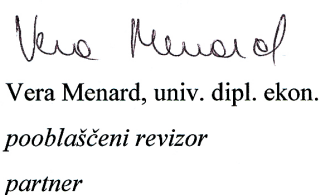 Vera Menard
Vera Menard, univ. dipl. ekon.
pooblaščeni revizor
partner